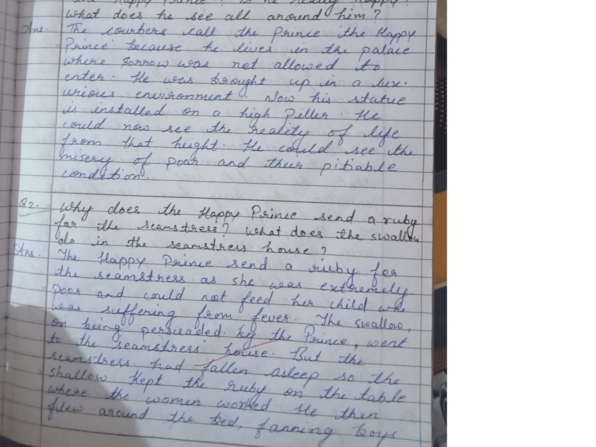 the Happy Prince? Is he really happy?
What does he see all around him?
Ans. The courtiers call the Prince the Happy
Prince because he lives in the palace
where sorrow was not allowed to
enter. He was brought up in a lux-
urious environment. Now his statue
is installed on a high piller. He
could now see the reality of life
from that height. He could see the
misery of poor and their pitiable
condition.
Q2. Why does the Happy Prince send a ruby
for the seamstress? What does the swallow
do in the seamstress house?
Ans. The Happy Prince send a ruby for
the seamstress as she was extremely
poor and could not feed her child who
was suffering from fever. The swallow,
on being persuaded by the Prince, went
to the seamstress house. But the
seamstress had fallen asleep so the
shallow kept the ruby on the table
where the women worked. He then
flew around the bed, fanning boys